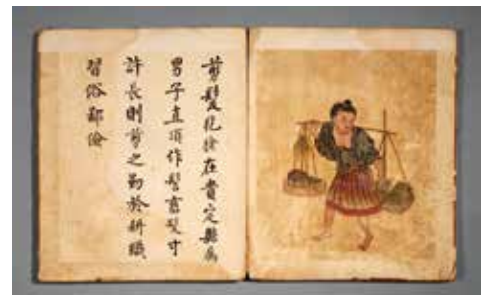 剪髮犵狫在貴定縣属
男子直頂作髻蓄髮寸
許長則剪之勤於耕織
習俗鄙儉